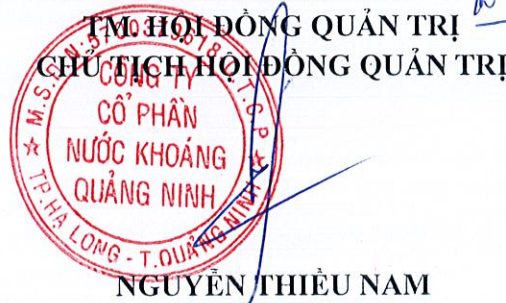 TM. HỘI ĐỒNG QUẢN TRỊ
CHỦ TỊCH HỘI ĐỒNG QUẢN TRỊ
CÔNG TY
CỔ PHẦN
NƯỚC KHOÁNG
QUẢNG NINH
TP. HẠ LONG - T. QUẢNG NINH
NGUYỄN THIỀU NAM